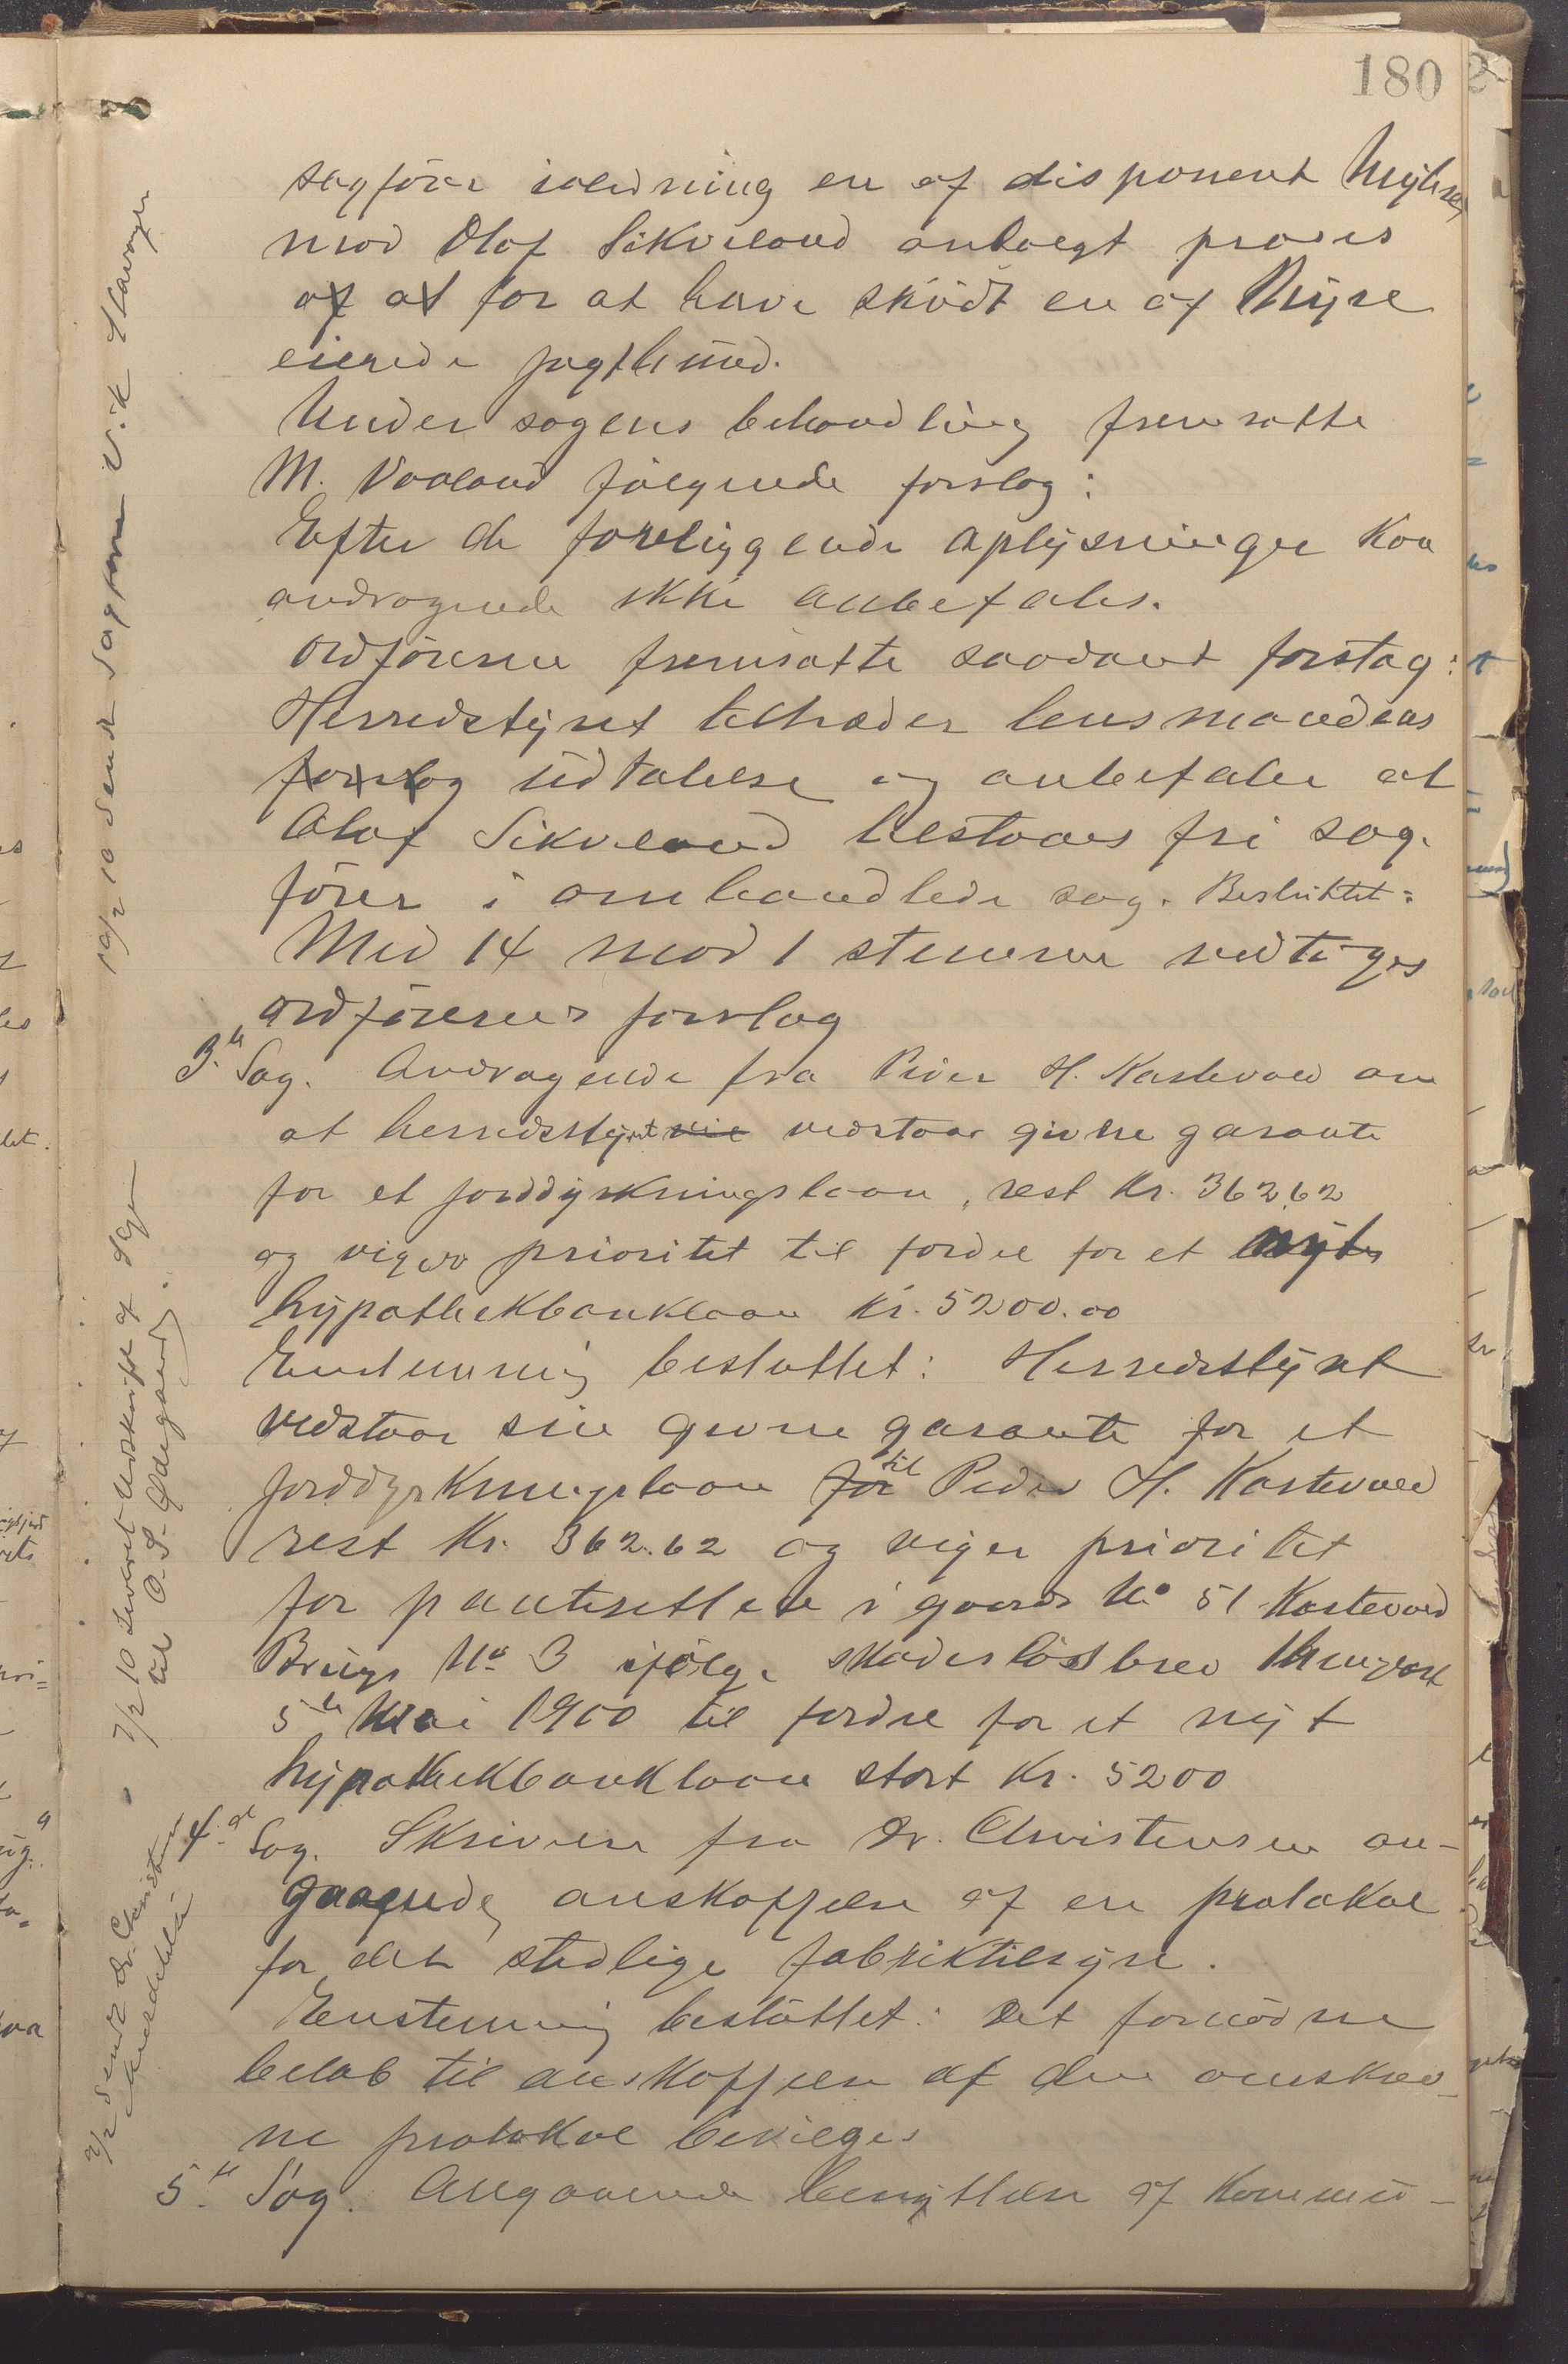 180
sagfører i anledning en af disponent
mod Olaf Sikveland anlagt proces
af at for at have skudt en af Myhre
eiende jagthund.
Under sagens behandling fremsatte
M. Vaaland følgende forslag:
Efter de foreliggende oplysninger kan
andragende ikke anbefales.
Ordføreren fremsatte saadant forslag:
Herredstyret tiltræder lensmandens
forslag udtalelse og anbefaler at
Olaf Sikveland tilstaaes fri sag-
fører i omhandlede sag. Besluttet:
Med 14 mod 1 stemme vedtoges
ordførerens forslag
3.die Sag. Andragende fra Peder H. Kastevold om
at herredstyret vil vedstaar givne garanti
for et jorddyrkningslaan, rest Kr. 362,62
og viger prioritet til fordel for et nyt
hypothekbanklaan Kr. 5200.00
Enstemmig besluttet: Herredstyret
vedstaar sin givne garanti for et
jorddyrkningslaan for til Peder H. Kastevold
rest Kr. 362.62 og viger prioritet
for pantsettelse i gaards No 51 Kastevold
Brugs No 3 ifølge skadesløsbrev
5te Mai 1900 til fordel for et nyt
hypothekbanklaan stort Kr. 5200
4.de Sag. Skrivelse fra Dr. Christensen an-
gaaende anskaffelse af en protokol
for det stedlige fabriktilsyn.
Enstemmig besluttet: Det fornødne
beløb til anskaffelse af den omskrev-
ne protokol bevilges
5.te Sag. Angaaende benyttelse af Kommu-
10/2 10 sendt Sagfører Vik Stavanger
7/2 10 Leveret Udskrift af Sagen
til O. S.
2/2 sendt Dr. Christensen